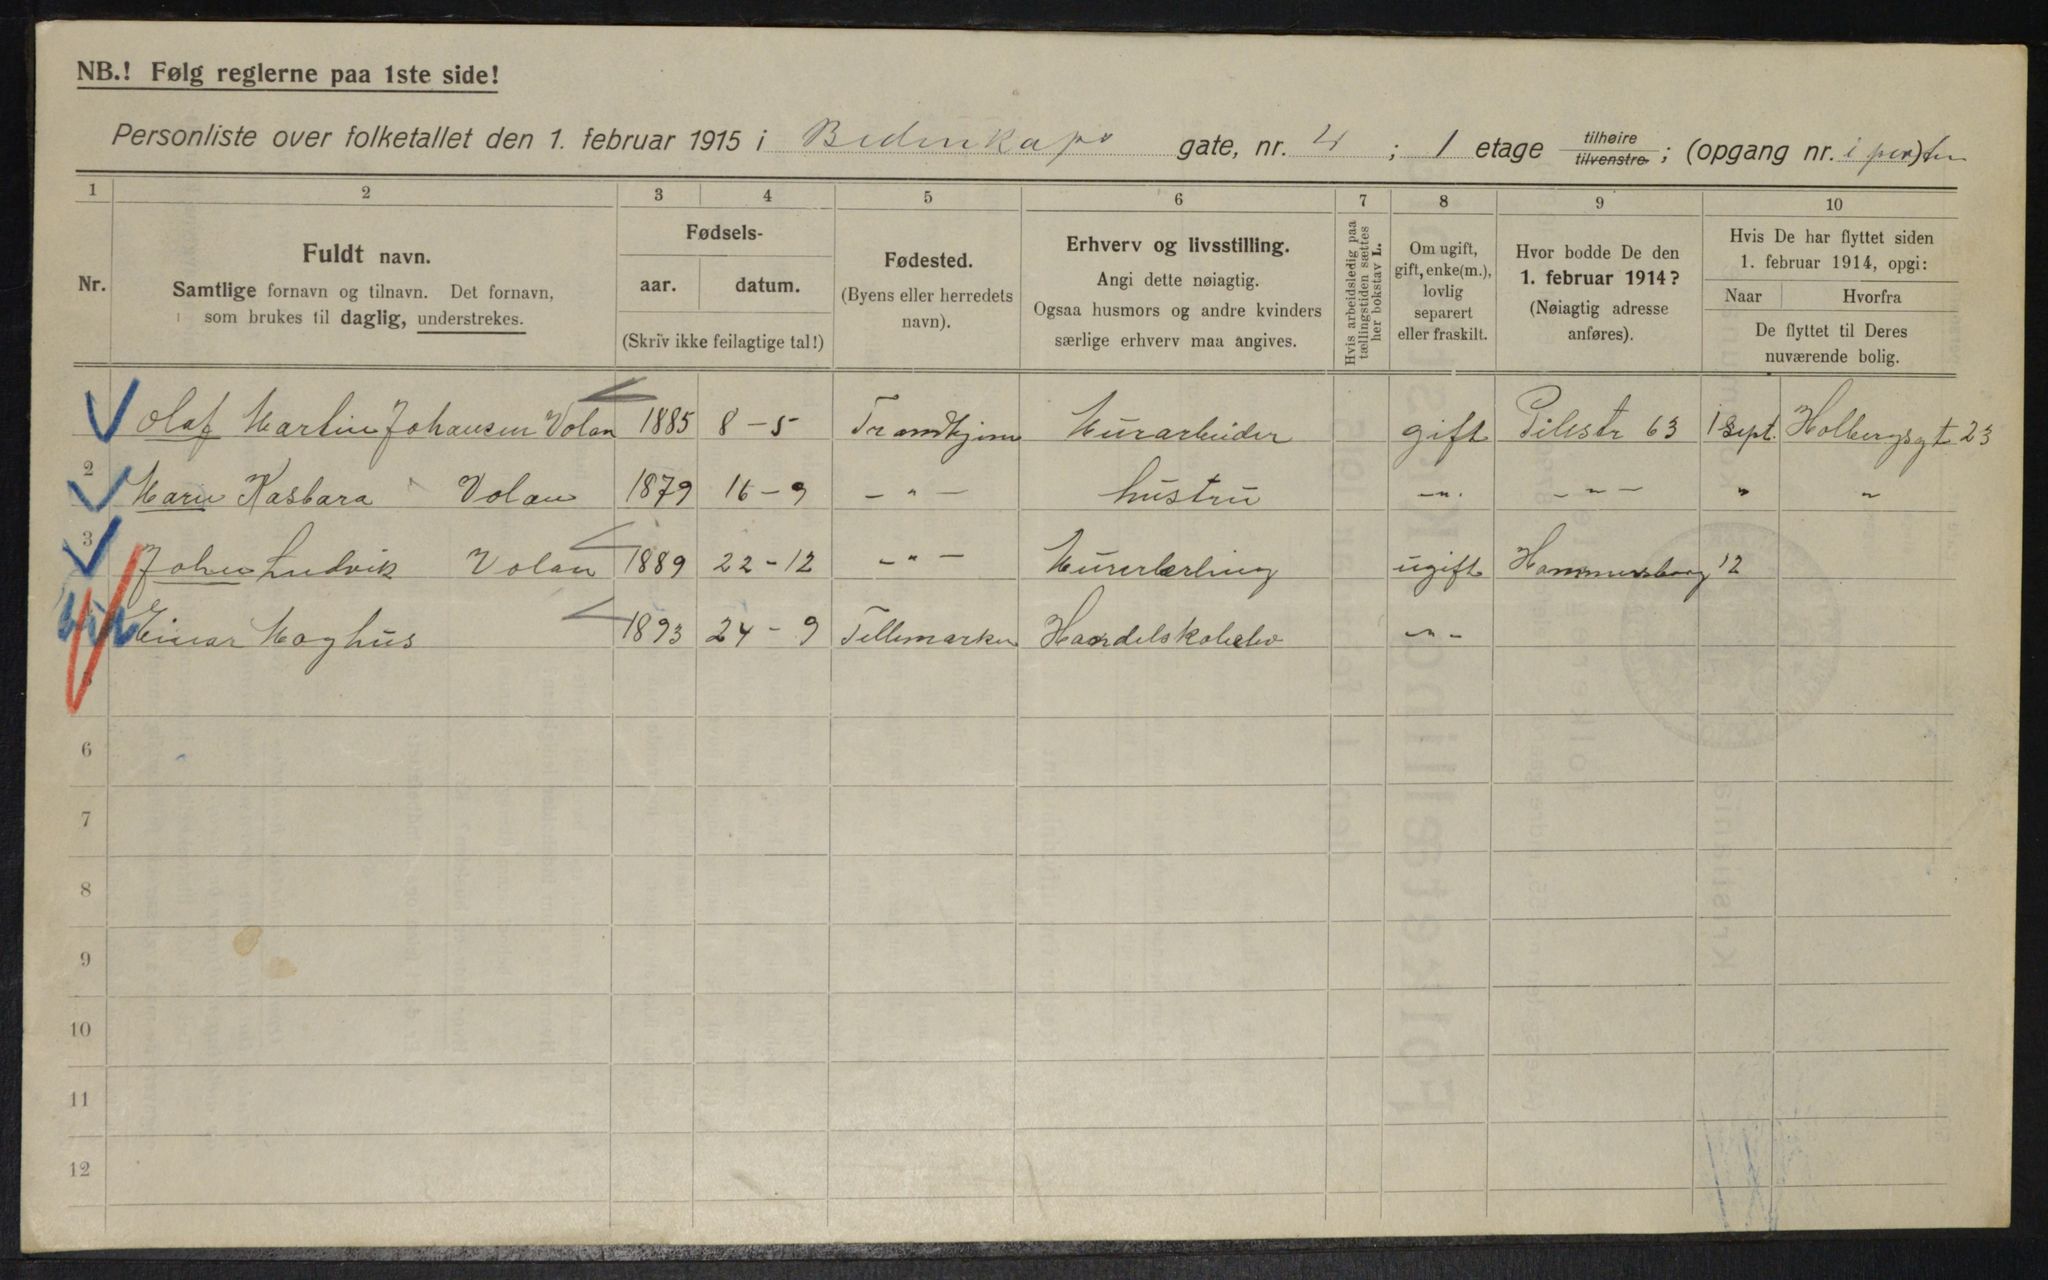 NB.! Følg reglerne paa 1ste side!
Personliste over folketallet den 1. februar 1915 i Bidenkaps gate, nr. 4 ; 1 etage tilhøire tilvenstre ; (opgang nr. i porten)
1 2 3 4 5 6 7 8 9 10
Nr.
Fuldt navn.
Samtlige fornavn og tilnavn. Det fornavn,
som brukes til daglig, understrekes.
Fødsels-
aar. datum.
(Skriv ikke feilagtige tal!)
Fødested.
(Byens eller herredets
navn).
Erhverv og livsstilling.
Angi dette nøiagtig.
Ogsaa husmors og andre kvinders
særlige erhverv maa angives.
Hvis arbeidsledig paa
tællingstiden sættes
her bokstav L.
Om ugift,
gift, enke(m.),
lovlig
separert
eller fraskilt.
Hvor bodde De den
1. februar 1914?
(Nøiagtig adresse
anføres).
Hvis De har flyttet siden
1. februar 1914, opgi:
Naar Hvorfra
De flyttet til Deres
nuværende bolig.
Olaf Martin Johansen Volan 1885 8-5 Trondhjem Murarbeider gift Pilestr 63 1 Sept. Holbergsgt 23
2 Maren Kasbara Volan 1879 16-9 -"- hustru -"- -"- " "
3 Johan Ludvik Volan 1889 22-12 -"- Murerlærling ugift Hammersborg 12
Einar Moghus 1893 24-9 Tellemarken Handelskoleelev -"-
5
6
7
8
9
10
11
12